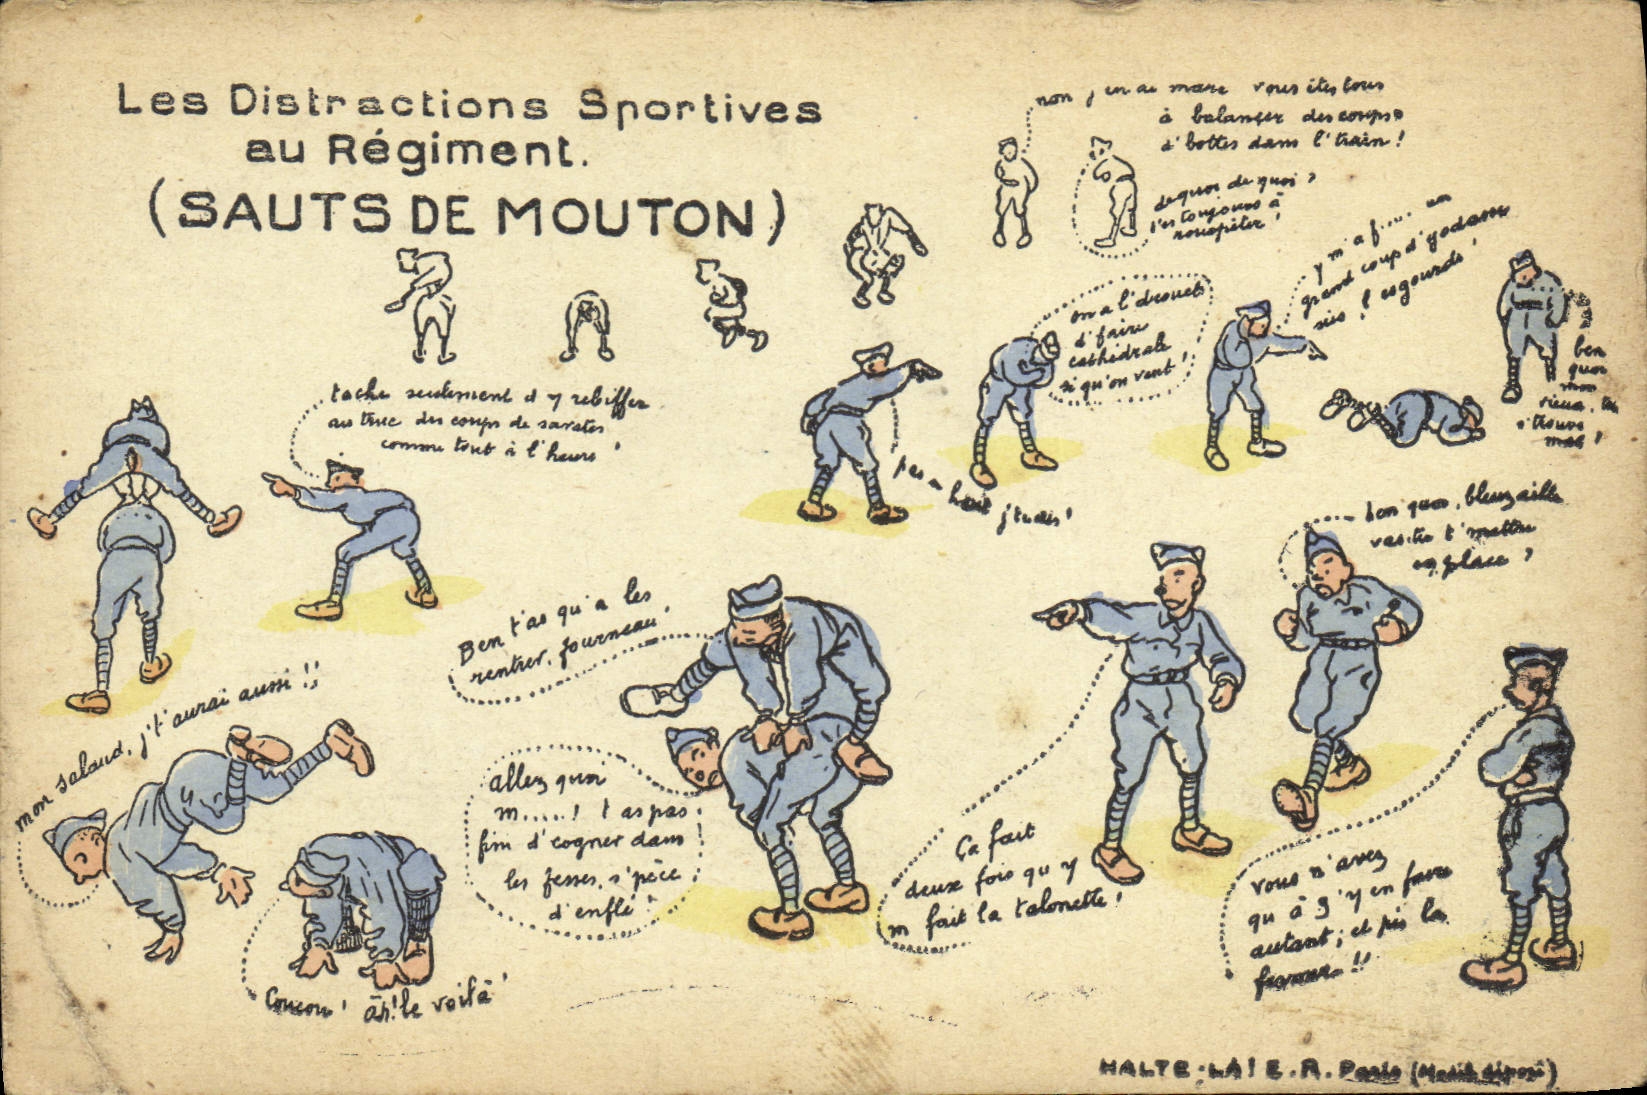 Les Distractions Sportives
au Régiment.
(SAUTS DE MOUTON)
non j'en ai marre vous êtes tous
à balancer des coups
d'bottes dans l'train !
de quoi de quoi ?
t'es toujours à
rouspéter !
y m'a f... un
grand coup d'godasse
sus l'esgourde !
on a l'drouet
d'faire
cathédrale
si qu'on veut !
ben
quoi
mon
vieux, tu
t'trouve
mal !
tache seulement d'y rebiffer
au truc des coups de savates
comme tout à l'heure !
pas si haut j'tudis !
ben quoi, bleusaille
vas-tu t'mettre
en place ?
Ben t'as qu'à les
rentrer, fourneau !
mon salaud, j't'aurai aussi !!
allez quoi
m.....! t'as pas
fini d'cogner dans
les fesses, s'pèce
d'enflé !
Ça fait
deux fois qu'y
m'fait la talonette !
vous n'avez
qu'à s'y en faire
autant ; et pis la
ferme !!
Coucou ! āh! le voilà !
HALTE-LÀ! E.R. Paris (Modèle déposé)